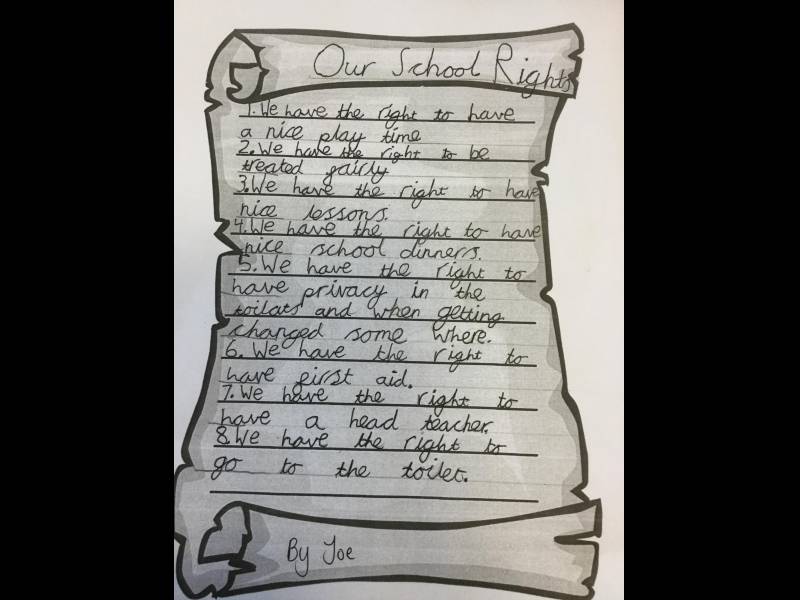 Our School Rights
1. We have the right to have
a nice play time
2. We have the right to be
treated fairly
3. We have the right to have
nice lessons.
4. We have the right to have
nice school dinners.
5. We have the right to
have privacy in the
toilets and when getting
changed some where.
6. We have the right to
have first aid.
7. We have the right to
have a head teacher.
8. We have the right to
go to the toilet.
By Joe